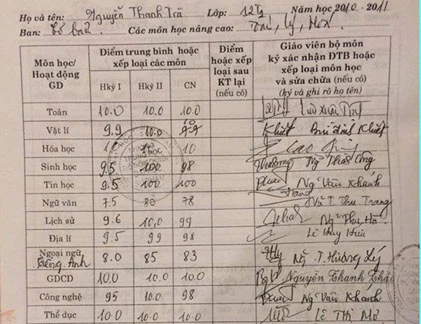 Họ và tên: Nguyễn Thanh Trà Lớp: 12T2 Năm học 2010 - 2011
Ban: Cơ bản Các môn học nâng cao: Toán, Lý, Hóa
Môn học/ Hoạt động GD
Điểm trung bình hoặc xếp loại các môn
Hkỳ I Hkỳ II CN
Điểm hoặc xếp loại sau KT lại (nếu có)
Giáo viên bộ môn ký xác nhận ĐTB hoặc xếp loại môn học và sửa chữa (nếu có)
(ký và ghi rõ họ tên)
Toán 10.0 10.0 10.0
Vật lí 9.9 10.0 Bùi Đình Khiết
Hóa học 10
Sinh học 9.5 100 98
Tin học 9.5 100 100 Ng Văn Khánh
Ngữ văn 7.5 80 78 Trang
Lịch sử 9.6 10.0 99
Địa lí 9.5 99 98 Lê Thúy
Ngoại ngữ Tiếng Anh 8.0 85 83 Ng. T. Hương Lý
GDCD 10.0 10.0 10.0 Nguyễn Thanh
Công nghệ 95 10.0 98 Ng Văn Khánh
Thể dục 10.0 10.0 10.0 Lê Thị Mơ